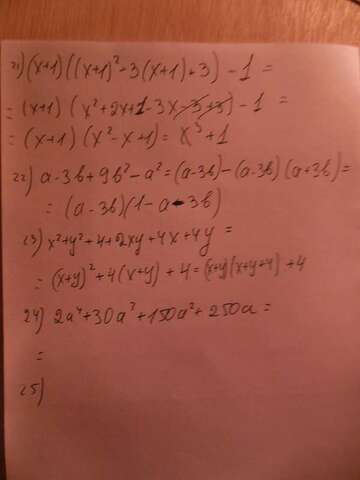 21) (x+1)((x+1)²-3(x+1)+3) - 1 =
= (x+1) (x²+2x+1-3x-3+3) - 1 =
= (x+1) (x²-x+1) = x³+1
22) a-3b+9b²-a² = (a-3b)-(a-3b)(a+3b) =
= (a-3b)(1-a-3b)
23) x²+y²+4+2xy+4x+4y =
= (x+y)²+4(x+y)+4 = (x+y)(x+y+4)+4
24) 2a⁴+30a³+150a²+250a =
=
25)